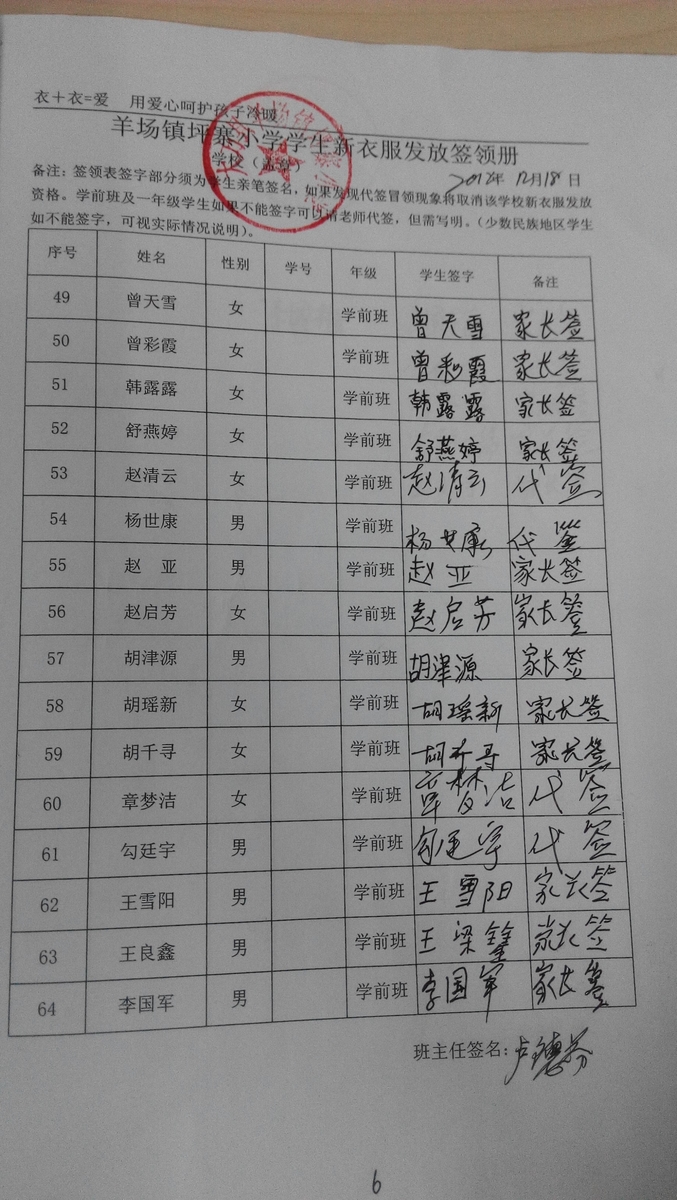 衣+衣=爱 用爱心呵护孩子冷暖
羊场镇坪寨小学学生新衣服发放签领册
学校(盖章)
2012年12月18日
备注:签领表签字部分须为学生亲笔签名,如果发现代签冒领现象将取消该学校新衣服发放
资格。学前班及一年级学生如果不能签字可以请老师代签,但需写明。(少数民族地区学生
如不能签字,可视实际情况说明)。
序号 姓名 性别 学号 年级 学生签字 备注
49 曾天雪 女 学前班 曾天雪 家长签
50 曾彩霞 女 学前班 曾彩霞 家长签
51 韩露露 女 学前班 韩露露 家长签
52 舒燕婷 女 学前班 舒燕婷 家长签
53 赵清云 女 学前班 赵清云 代签
54 杨世康 男 学前班 杨世康 代签
55 赵 亚 男 学前班 赵亚 家长签
56 赵启芳 女 学前班 赵启芳 家长签
57 胡津源 男 学前班 胡津源 家长签
58 胡瑶新 女 学前班 胡瑶新 家长签
59 胡千寻 女 学前班 胡千寻 家长签
60 章梦洁 女 学前班 章梦洁 代签
61 勾廷宇 男 学前班 勾廷宇 代签
62 王雪阳 男 学前班 王雪阳 家长签
63 王良鑫 男 学前班 王梁鑫 家长签
64 李国军 男 学前班 李国军 家长签
班主任签名:卢德芬
6